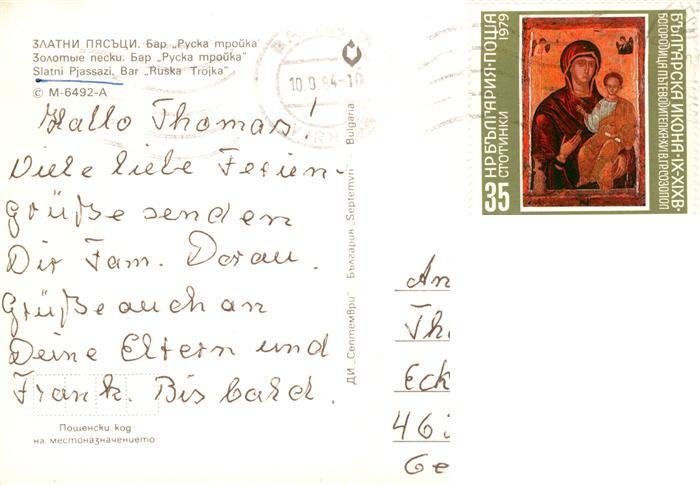 ЗЛАТНИ ПЯСЪЦИ. Бар „Руска тройка"
Золотые пески. Бар „Руска тройка"
Slatni Pjassazi, Bar "Ruska Trojka"
© М-6492-А
Hallo Thomas!
Viele liebe Ferien-
grüße senden
Dir Fam. Dorau.
Grüße auch an
Deine Eltern und
Frank. Bis bald.
Пощенски код
на местоназначението
ДИ „Септември" България „Septemvri" Bulgaria
10.9.84-10
НР БЪЛГАРИЯ·ПОЩА
1979
35
СТОТИНКИ
БЪЛГАРСКА ИКОНА·IX-XIX В·
БОГОРОДИЦА ПЪТЕВОДИТЕЛКА XVI В. ГР. СОЗОПОЛ
An
Th
Eck
46
Ge